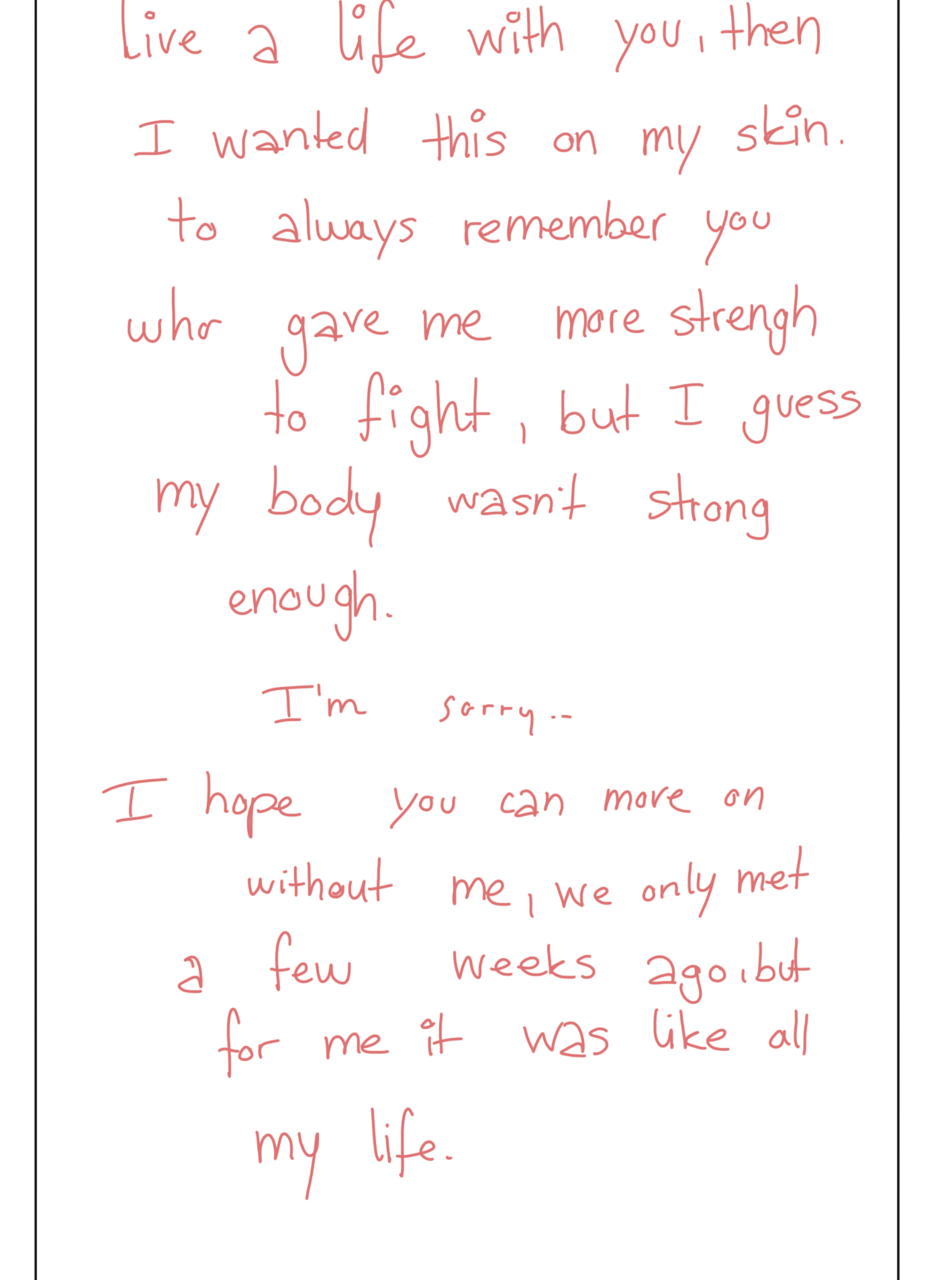 Live a life with you, then
I wanted this on my skin.
to always remember you
who gave me more strengh
to fight, but I guess
my body wasn't strong
enough.
I'm sorry..
I hope you can move on
without me, we only met
a few weeks ago, but
for me it was like all
my life.